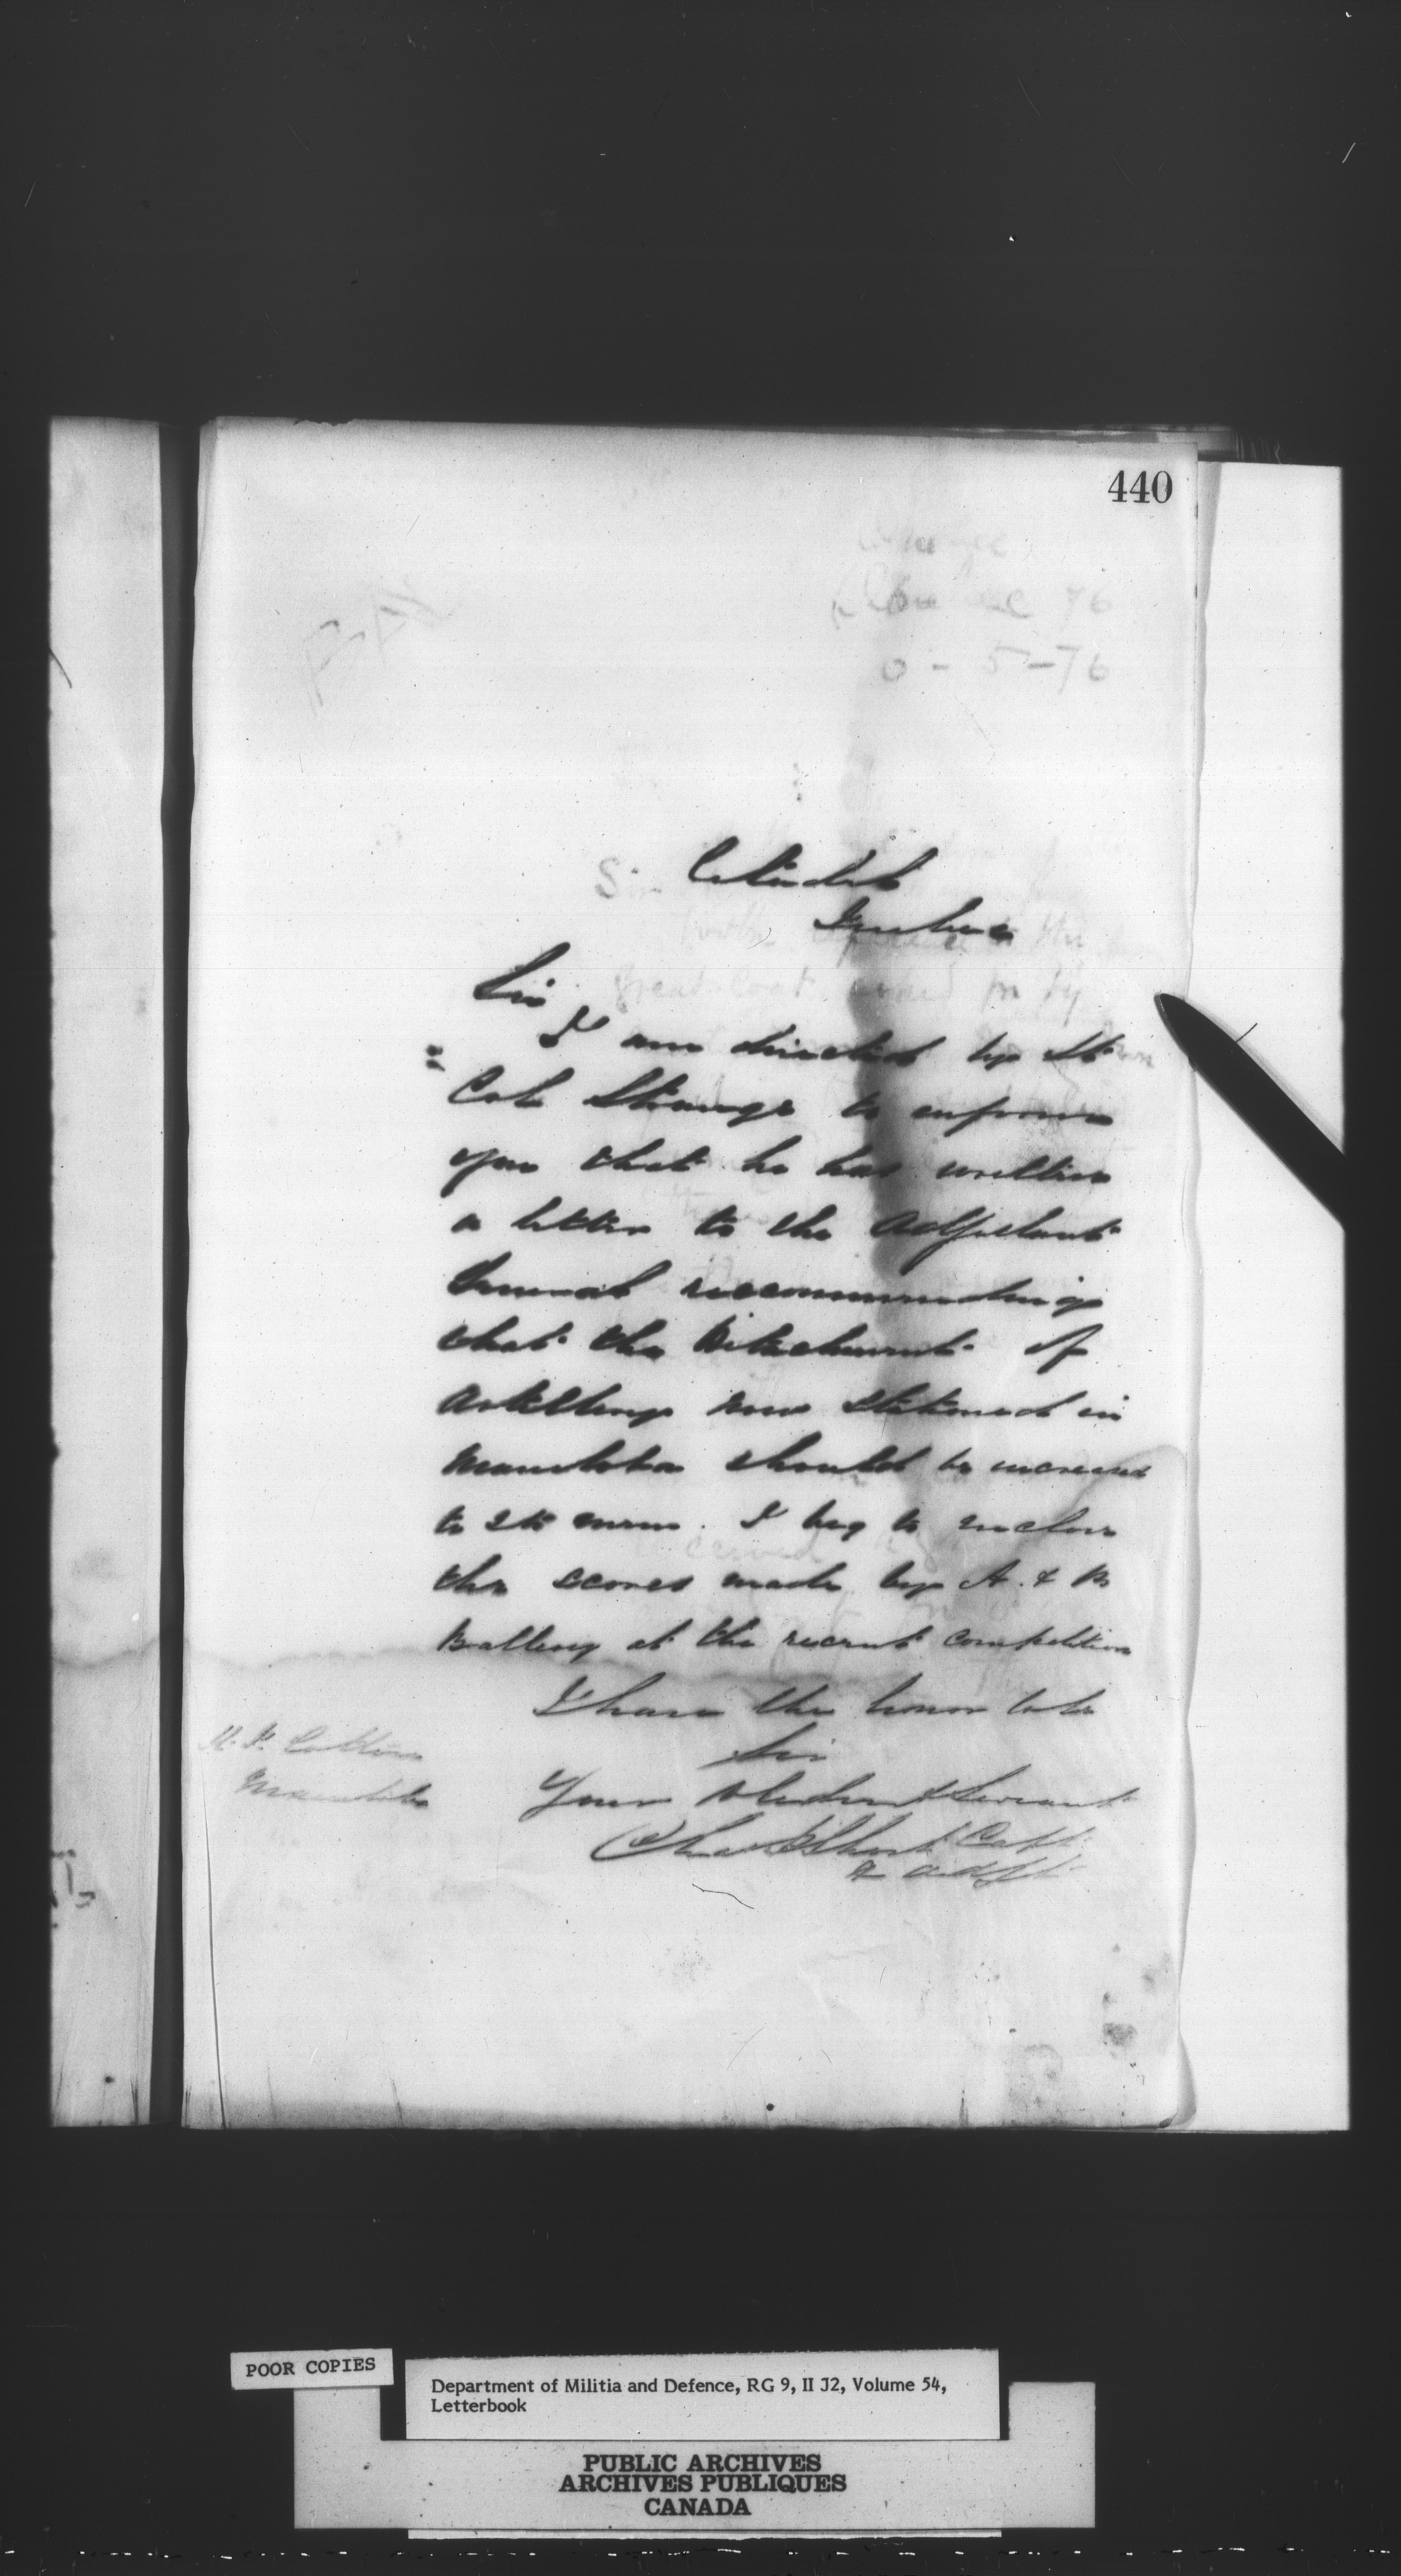 440
Citadel
Quebec
Sir
I am directed by Lt
Col Strange to inform
you that he has written
a letter to the Adjutant
General reccommending
that the Detachment of
Artillery now stationed in
Manitoba should be increased
to men. I beg to enclose
the scores made by A. & B
Battery at the recent competition
I have the honor to be
Sir
Your Obedient Servant
Chas Short Capt.
& Adjt
Cotton
Manitoba
POOR COPIES
Department of Militia and Defence, RG 9, II J2, Volume 54,
Letterbook
PUBLIC ARCHIVES
ARCHIVES PUBLIQUES
CANADA